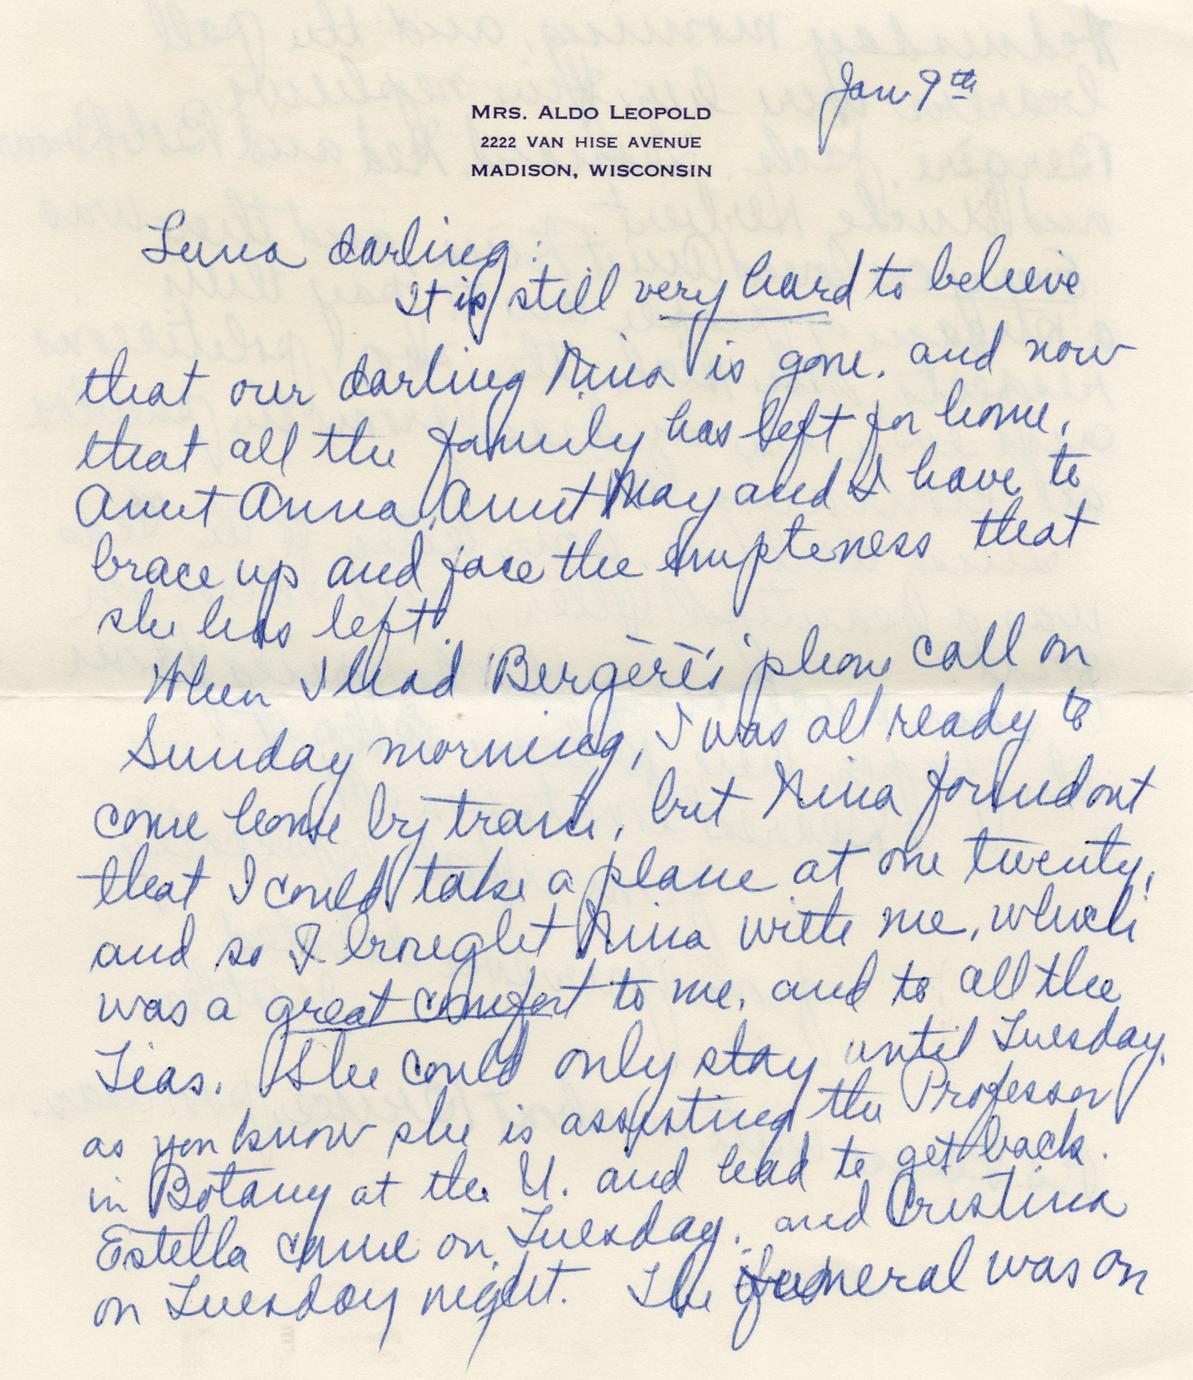 Jan 9th
MRS. ALDO LEOPOLD
2222 VAN HISE AVENUE
MADISON, WISCONSIN
Luna darling:
It is still very hard to believe
that our darling Nina is gone. and now
that all the family has left for home,
Aunt Anna, Aunt May and I have to
brace up and face the empteness that
she has left.
When I had Bergère's 'phone call on
Sunday morning, I was all ready to
come home by train, but Nina found out
that I could take a plane at one twenty,
and so I brought Nina with me, which
was a great comfort to me, and to all the
Tias. She could only stay until Tuesday,
as you know she is assisting the Professor
in Botany at the U. and had to get back.
Estella came on Tuesday, and Cristina
on Tuesday night. The funeral was on